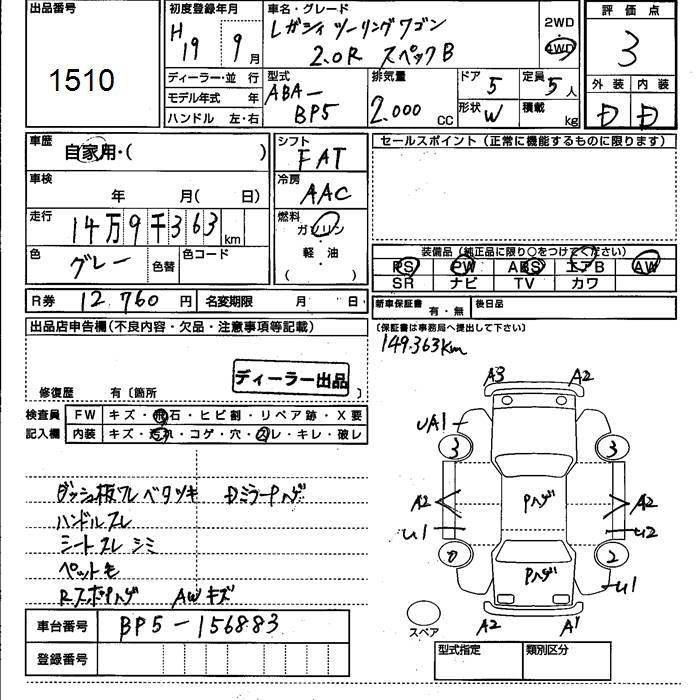 出品番号
1510
初度登録年月
H19 9月
車名・グレード
レガシィ ツーリングワゴン
2.0R スペックB
2WD
4WD
評価点
3
外装 内装
D D
ディーラー・並行
モデル年式 年
ハンドル 左・右
型式
ABA-
BP5
排気量
2.000 cc
ドア 5
定員 5人
形状 W
積載 kg
車歴
自家用・( )
シフト
FAT
セールスポイント (正常に機能するものに限ります)
車検
年 月( 日)
冷房
AAC
走行
14万9千363km
燃料
ガソリン
・
軽・油
( )
色
グレー
色替
色コード
装備品(純正品に限り○をつけてください)
PS PW ABS エアB AW
SR ナビ TV カワ
R券 12.760円
名変期限 月 日
新車保証書 有・無
後日品
(保証書は事務局へ提出して下さい)
149.363km
出品店申告欄(不良内容・欠品・注意事項等記載)
ディーラー出品
修復歴 有〔箇所 〕
検査員
記入欄
FW キズ・飛石・ヒビ割・リペア跡・X要
内装 キズ・汚れ・コゲ・穴・スレ・キレ・破レ
ダッシュ板ワレ ベタツキ DミラーPハゲ
ハンドルスレ
シートスレ シミ
ペット毛
RスポPハゲ AWキズ
車台番号 BP5-156883
登録番号
A3 A2
UA1
3 3
A2 Pハゲ A2
U1 U2
0 2
Pハゲ
U1
スペア
A2 A1
型式指定 類別区分